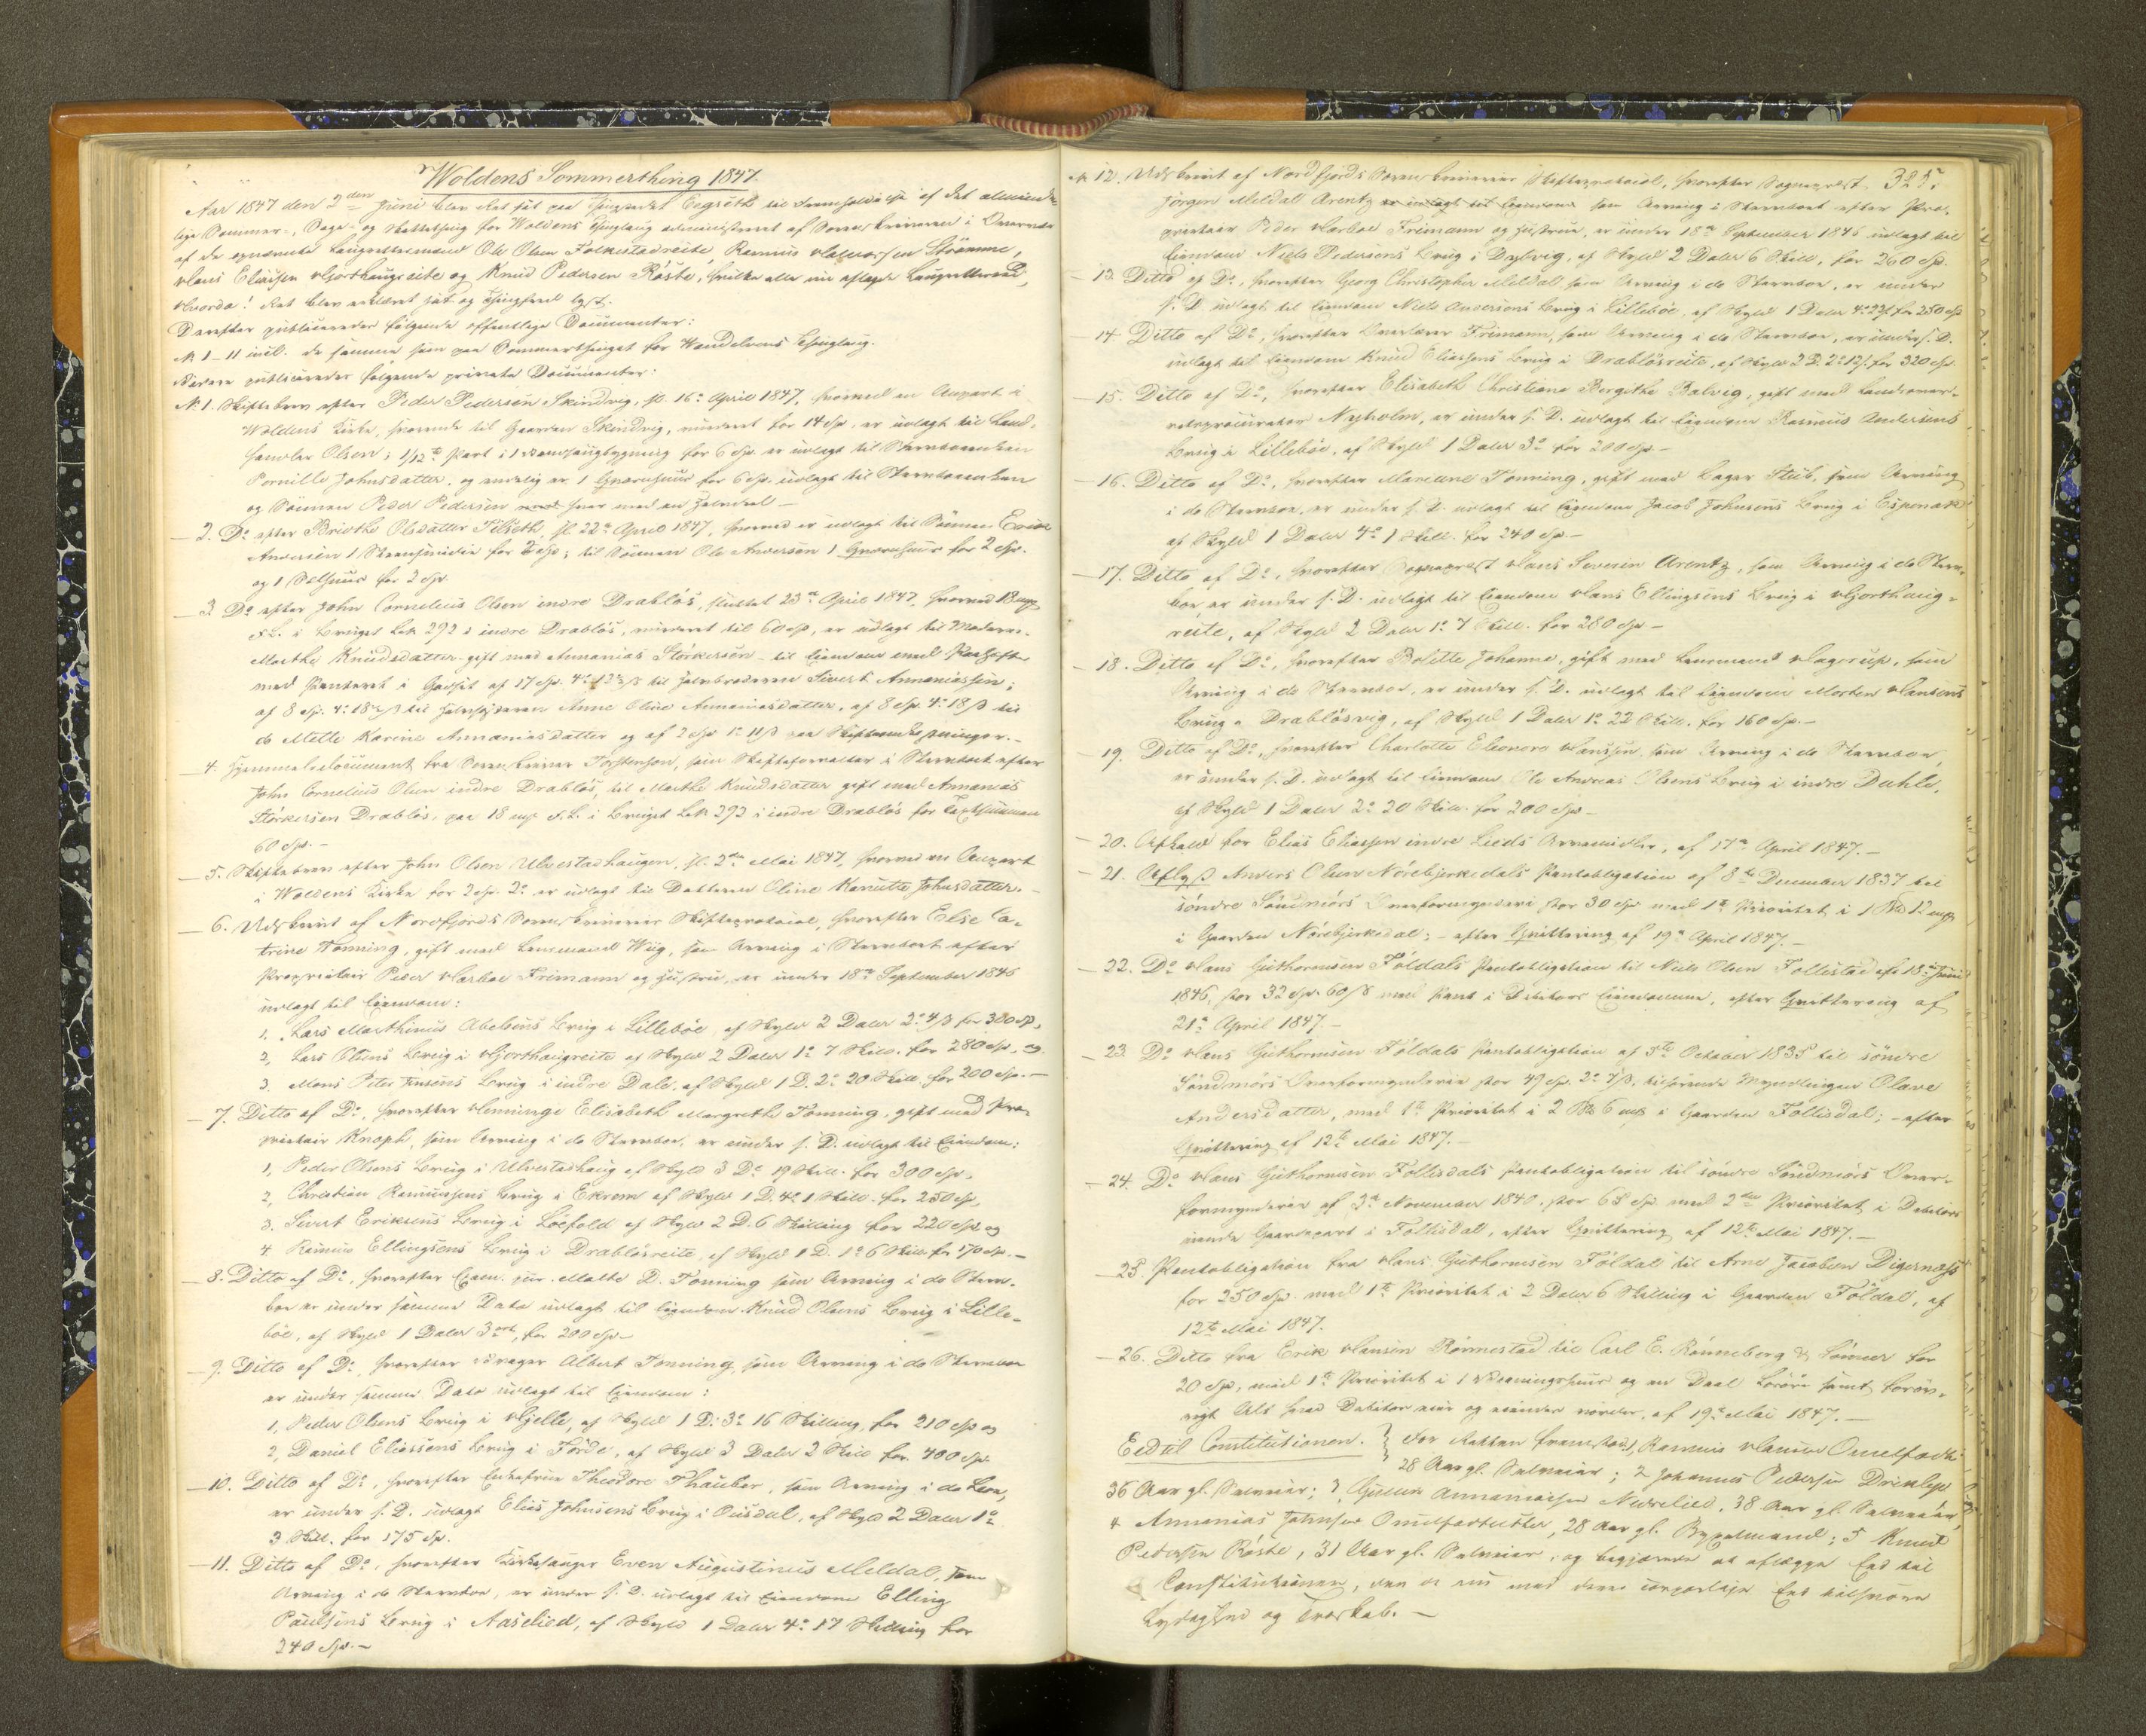 Woldens Sommerthing 1847.
Aar 1847 den 2den Juni blev Ret sat paa Thingstedet Engeseth til Afholdelse af det alminde-
lige Sommer-, Sage- og Skattething for Woldens Thinglaug administreret af Sorenskriveren i Overvær
af de opnævnte Laugrettesmænd Ole Olsen Folkestadreite, Rasmus Halvorsen Strömme,
Hans Eliassen Hjorthaugreite og Knud Pedersen Röste, hvilke alle nu aflagde Laugretteseed.
Hvorda! Ret blev erklæret sat og Thingfred lyst.
Derefter publiceredes følgende offentlige Documenter:
N. 1–11 incl. de samme som paa Sommerthinget for Wandelvens Thinglaug.
Videre publiceredes følgende private Documenter:
N. 1. Skiftebrev efter Peder Pedersen Skindvig, sl. 16de April 1847, hvorved en Anpart i
Woldens Kirke, svarende til Gaarden Skindvig, vurderet for 14 Spd. er udlagt til Land-
handler Olsen; 1/12te Part i 1 for 6 Spd. er udlagt til Stervboenken
Pernille Johnsdatter, og endelig er 1 Qværnhuus for 6 Spd. udlagt til Stervboenken
og Sönnen Peder Pedersen hver med en Halvdeel –
– 2. Do efter Brithe Olsdatter Pilseth, sl. 22de April 1847, hvorved er udlagt til Sönnen
Andersen 1 for 2 Spd; til Sönnen Ole Andersen 1 Qværnhuus for 2 Spd.
og 1 Sælhuus for 2 Spd.
– 3. Do efter John Cornelius Olsen indre Drablös, sluttet 23de April 1847, hvorved 18 mrk
F.L. i Bruget Lk 292 i indre Drablös, vurderet til 60 Spd, er udlagt til Moderen
Marthe Knudsdatter – gift med Annanias Störkersen – til Eiendom mod
med Panteret i Godset af 17 Spd. 4o 12 ß til Halvbroderen Sivert Annaniassen;
af 8 Spd. 4o 18 ß til Halvsösteren Anne Oline Annaniasdatter, af 8 Spd. 4o 18 ß til
do Mette Karine Annaniasdatter og af 2 Spd 1o 11 ß paa Skifteomkostninger. –
– 4. Hjemmelsdocument fra Sorenskriver Torstenson, som Skifteforvalter i Stervboet efter
John Cornelius Olsen indre Drablös, til Marthe Knudsdatter gift med Annanias
Störkersen Drablös, paa 18 mrk F.L. i Bruget Lk 292 i indre Drablös for Taxtsummen
60 Spd. –
– 5. Skiftebrev efter John Olsen Ulvestadhaugen, sl. 2den Mai 1847, hvorved en Anpart
i Woldens Kirke for 2 Spd. 2o er udlagt til Datteren Oline Kanutte Johnsdatter. –
– 6. Udskrivt af Nordfjords Sorenskriveries Skifteprotocol, hvorefter Else Ca-
trine Tonning, gift med Lensmand Wiig, som Arving i Stervboet efter
Proprietair Peder Harboe Friemann og Hustru, er under 18de September 1846
udlagt til Eiendom:
1, Lars Marthinus Abelsens Brug i Lilleböe, af Skyld 2 Daler 2o 4 ß for 300 Spd,
2, Lars Olsens Brug i Hjorthaugreite af Skyld 2 Daler 1o 7 Skill. for 280 Spd, og
3, Mons Peter Jensens Brug i indre Dale, af Skyld 1 D. 2o 20 Skill. for 200 Spd. –
– 7. Ditto af Do, hvorefter Henninge Elisabeth Margrethe Tonning, gift med Pro-
prietair Knoph, som Arving i do Stervboe, er under s. D. udlagt til Eiendom:
1, Peder Olsens Brug i Ulvestadhaug af Skyld 3 Do 19 Skill. for 300 Spd,
2, Christian Rasmussens Brug i Ekrem af Skyld 1 D. 4o 1 Skill. for 250 Spd,
3, Sivert Eriksens Brug i Löefold af Skyld 2 D. 6 Skilling for 220 Spd og
4, Rasmus Ellingsens Brug i Drablösreite, af Skyld 1 D. 1o 6 Skill. for 170 Spd. –
– 8. Ditto af Do, hvorefter Exam. jur. Malte D. Tonning som Arving i do Sterv-
boe er under samme Dato udlagt til Eiendom Knud Olsens Brug i Lille-
böe, af Skyld 1 Daler 3 ort, for 200 Spd –
– 9. Ditto af Do, hvorefter Albert Tonning, som Arving i do Stervboe
er under samme Dato udlagt til Eiendom:
1, Peder Olsens Brug i Hjelle, af Skyld 1 D. 3o 16 Skilling, for 210 Spd og
2, Daniel Eliassens Brug i Förde, af Skyld 3 Daler 2 Skill for 400 Spd.
– 10. Ditto af Do, hvorefter Enkefrue Theodore Thauber, som Arving i do Boe,
er under s. D. udlagt Elias Johnsens Brug i Ouisdal, af Skyld 2 Daler 1o
3 Skill. for 175 Spd.
– 11. Ditto af Do, hvorefter Kirkesanger Even Augustinus Meldal, som
Arving i do Stervboe, er under s. D. udlagt til Eiendom Elling
Paulsens Brug i Aaselied, af Skyld 1 Daler 4o 17 Skilling for
240 Spd. –
N. 12. Udskrivt af Nordfjords Sorenskriveries Skifteprotocol, hvorefter Sogneprest 325.
Jörgen Meldal Arentz er udlagt til Eiendom som Arving i Stervboet efter Pro-
prietair Peder Harboe Friemann og Hustrue, er under 18de September 1846 udlagt til
Eiendom Niels Pedersens Brug i Dysvig, af Skyld 2 Daler 6 Skill, for 260 Spd.
– 13. Ditto af Do, hvorefter Georg Christopher Meldal, som Arving i do Stervboe, er under
s. D. udlagt til Eiendom Niels Andersens Brug i Lilleböe, af Skyld 1 Daler 4o 22 ß for 250 Spd
– 14. Ditto af Do, hvorefter Overlærer Friemann, som Arving i do Stervboe, er under s. D.
udlagt til Eiendom Knud Eliassens Brug i Drablösreite, af Skyld 2 D. 2o 12 ß. for 320 Spd.
– 15. Ditto af Do, hvorefter Elisabeth Christiane Birgithe Balvig, gift med Landsover-
retsprocurator Nyholm, er under s. D. udlagt til Eiendom Rasmus Andersens
Brug i Lilleböe, af Skyld 1 Daler 3o for 200 Spd. –
– 16. Ditto af Do, hvorefter Mariane Tonning, gift med Bager Stub, som Arving
i do Stervboe, er under s. D. udlagt til Eiendom Jacob Johnsens Brug i Espenak
af Skyld 1 Daler 4o 1 Skill. for 240 Spd –
– 17. Ditto af Do, hvorefter Sogneprest Hans Severin Arentz, som Arving i do Sterv-
boe er under s. D. udlagt til Eiendom Hans Ellingsens Brug i Hjorthaug-
reite, af Skyld 2 Daler 1o 7 Skill. for 280 Spd –
– 18. Ditto af Do, hvorefter Bolette Johanne, gift med Lensmand Hagerup, som
Arving i do Stervboe, er under s. D. udlagt til Eiendom Morten Hansens
Brug i Drablösvig, af Skyld 1 Daler 1o 22 Skill. for 160 Spd. –
– 19. Ditto af Do, hvorefter Charlotte Eleonore Hanssen, som Arving i do Stervboe,
er under s. D. udlagt til Eiendom Ole Andreas Olsens Brug i indre Dahle,
af Skyld 1 Daler 2o 20 Skill. for 200 Spd –
– 20. Afkald for Elias Eliassen indre Lieds Arvemidler, af 17de April 1847. –
– 21. Aflyst Anders Olsen Nörebjerkedals Pantobligation af 8de December 1837 til
söndre Söndmörs Overformynderi stor 30 Spd med 1te Prioritet i 1 Pd 12 mrk
i Gaarden Nörebjerkedal; – efter Qvittering af 19de April 1847. –
– 22. Do Hans Guthormsen Földals Pantobligation til Niels Olsen Follestad af 18de Juni
1846, stor 32 Spd 60 ß med Pant i Debitors Eiendomme, efter Qvittering af
21de April 1847. –
– 23. Do Hans Guthormsen Földals Pantobligation af 5te October 1835 til söndre
Söndmörs Overformynderie stor 49 Spd. 2o 7 ß, tilhörende Myndlingen Olave
Andersdatter, med 1te Prioritet i 2 Pd 6 mrk i Gaarden Follisdal; – efter
Qvittering af 12te Mai 1847. –
– 24. Do Hans Guthormsen Follisdals Pantobligation til söndre Söndmörs Over-
formynderie af 3de November 1840, stor 65 Spd med 2den Prioritet i Debitors
eiende Gaardepart i Follisdal, efter Qvittering af 12te Mai 1847. –
– 25. Pantobligation fra Hans Guthormsen Földal til Arne Jacobsen Digernæss
for 250 Spd. med 1te Prioritet i 2 Daler 6 Skilling i Gaarden Földal, af
12te Mai 1847.
– 26. Ditto fra Erik Hansen Rönnestad til Carl E. Rönneberg & Sönner for
20 Spd, med 1te Prioritet i 1 Vaaningshuus og en Deel Lösöre samt forøv-
rigt Alt hvad Debitor eier og eiendes vorder, af 19de Mai 1847. –
Eed til Constitutionen. } For Retten fremstod 1, Rasmus Hansen Omelfodt
28 Aar gl. Selveier; 2 Johannes Pedersen Driveklep
36 Aar gl. Selveier; 3, Annaniassen Nedrelied, 38 Aar gl. Selveier,
4 Annanias Johnsen Omelfodt, 28 Aar gl. Bygselmand; 5 Knud
Pedersen Röste, 31 Aar gl. Selveier, og begjærede at aflægge Eed til
Constitutionen, den de nu med deres corporlige Eed tilsvore
Lydighed og Troskab. –